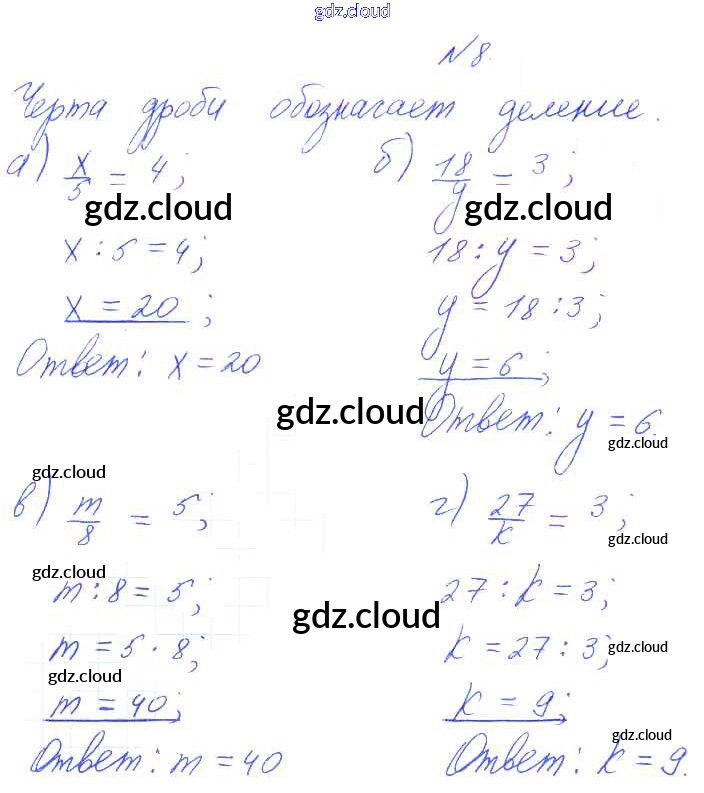 gdz.cloud
N 8.
Черта дроби обозначает деление.
а) x/5 = 4;
gdz.cloud
x : 5 = 4;
x = 20;
Ответ: x = 20
б) 18/y = 3;
gdz.cloud
18 : y = 3;
y = 18 : 3;
y = 6;
gdz.cloud
Ответ: y = 6.
gdz.cloud
gdz.cloud
в) m/8 = 5;
gdz.cloud
m : 8 = 5;
gdz.cloud
m = 5 · 8;
gdz.cloud
m = 40;
Ответ: m = 40
г) 27/k = 3;
gdz.cloud
27 : k = 3;
k = 27 : 3;
gdz.cloud
k = 9;
gdz.cloud
Ответ: k = 9.